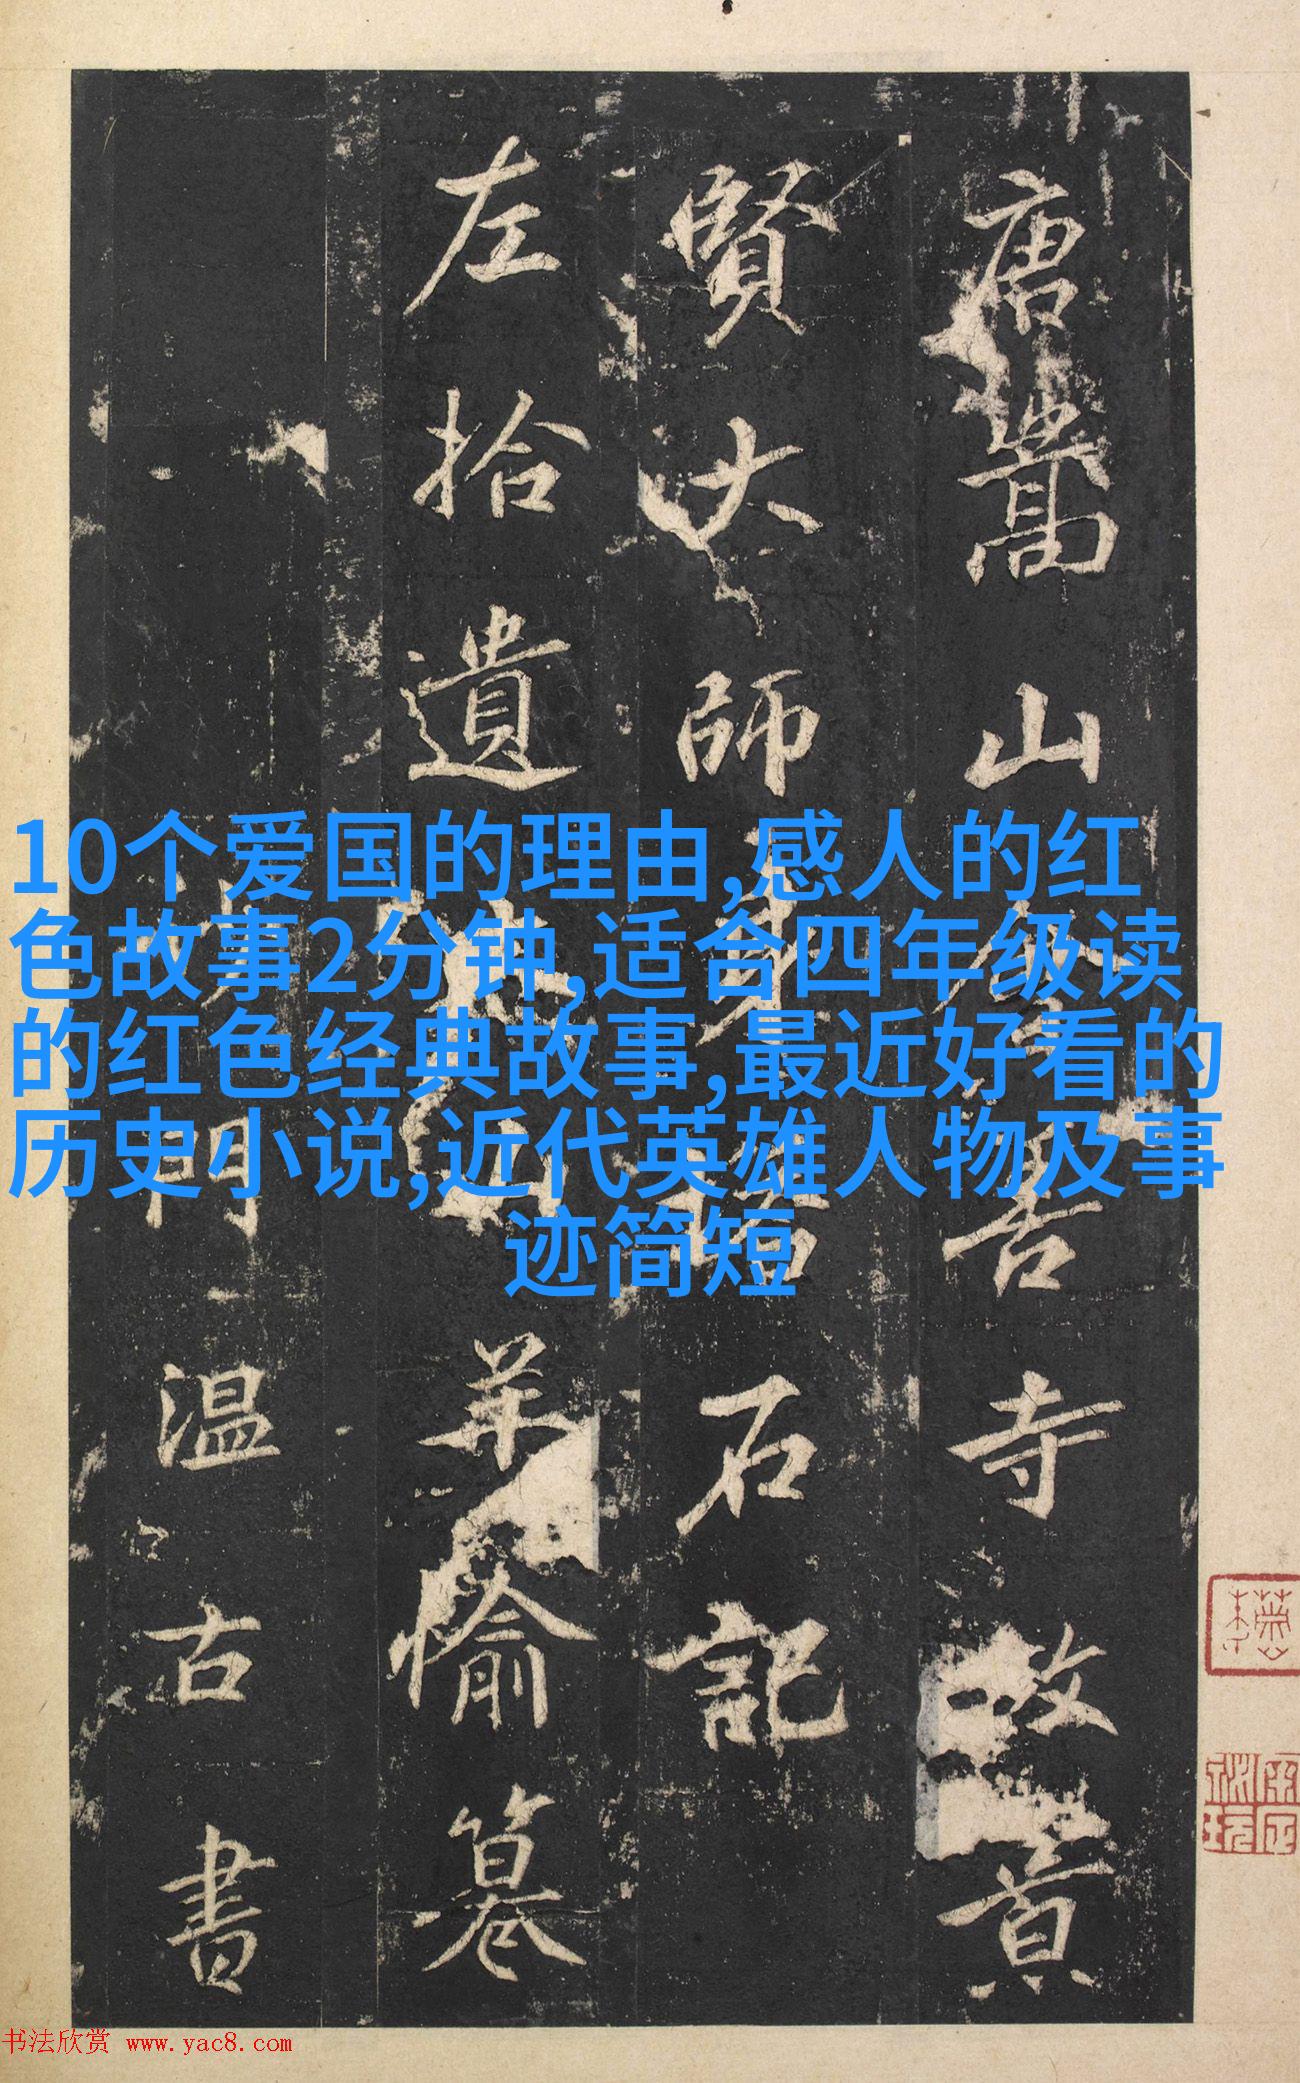 唐嵩山會善寺故景
賢大師身塔石記
左拾遺山羊愉纂
沙門温古書
10个爱国的理由,感人的红
色故事2分钟,适合四年级读
的红色经典故事,最近好看的
历史小说,近代英雄人物及事
迹简短
书法欣赏 www.yac8.com